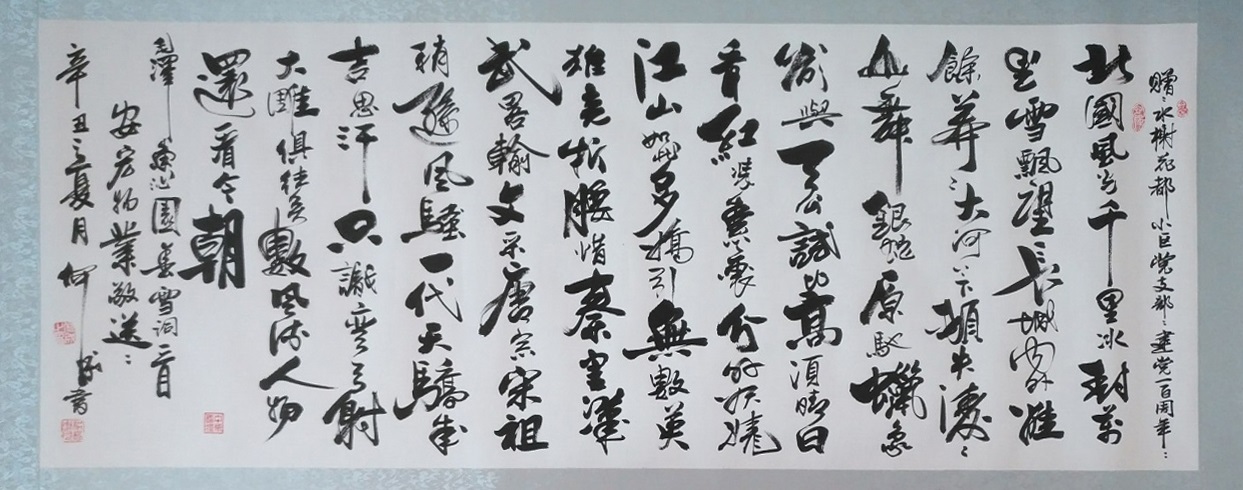 赠水榭花都小巨党支部建党一百周年
北國風光千里冰封萬
里雪飄望長城内外惟
餘莽:大河上下頓失滔:
山舞銀蛇原馳蠟象
欲與天公試比高須晴日
看紅裝素裹分外妖嬈
江山如此多嬌引無數英
雄竞折腰惜秦皇漢
武畧輸文采唐宗宋祖
稍遜風騷一代天驕成
吉思汗只識彎弓射
大雕俱往矣數風流人物
還看今朝
毛澤东沁園春雪詞一首
安宏物業敬送
辛丑之夏月何書